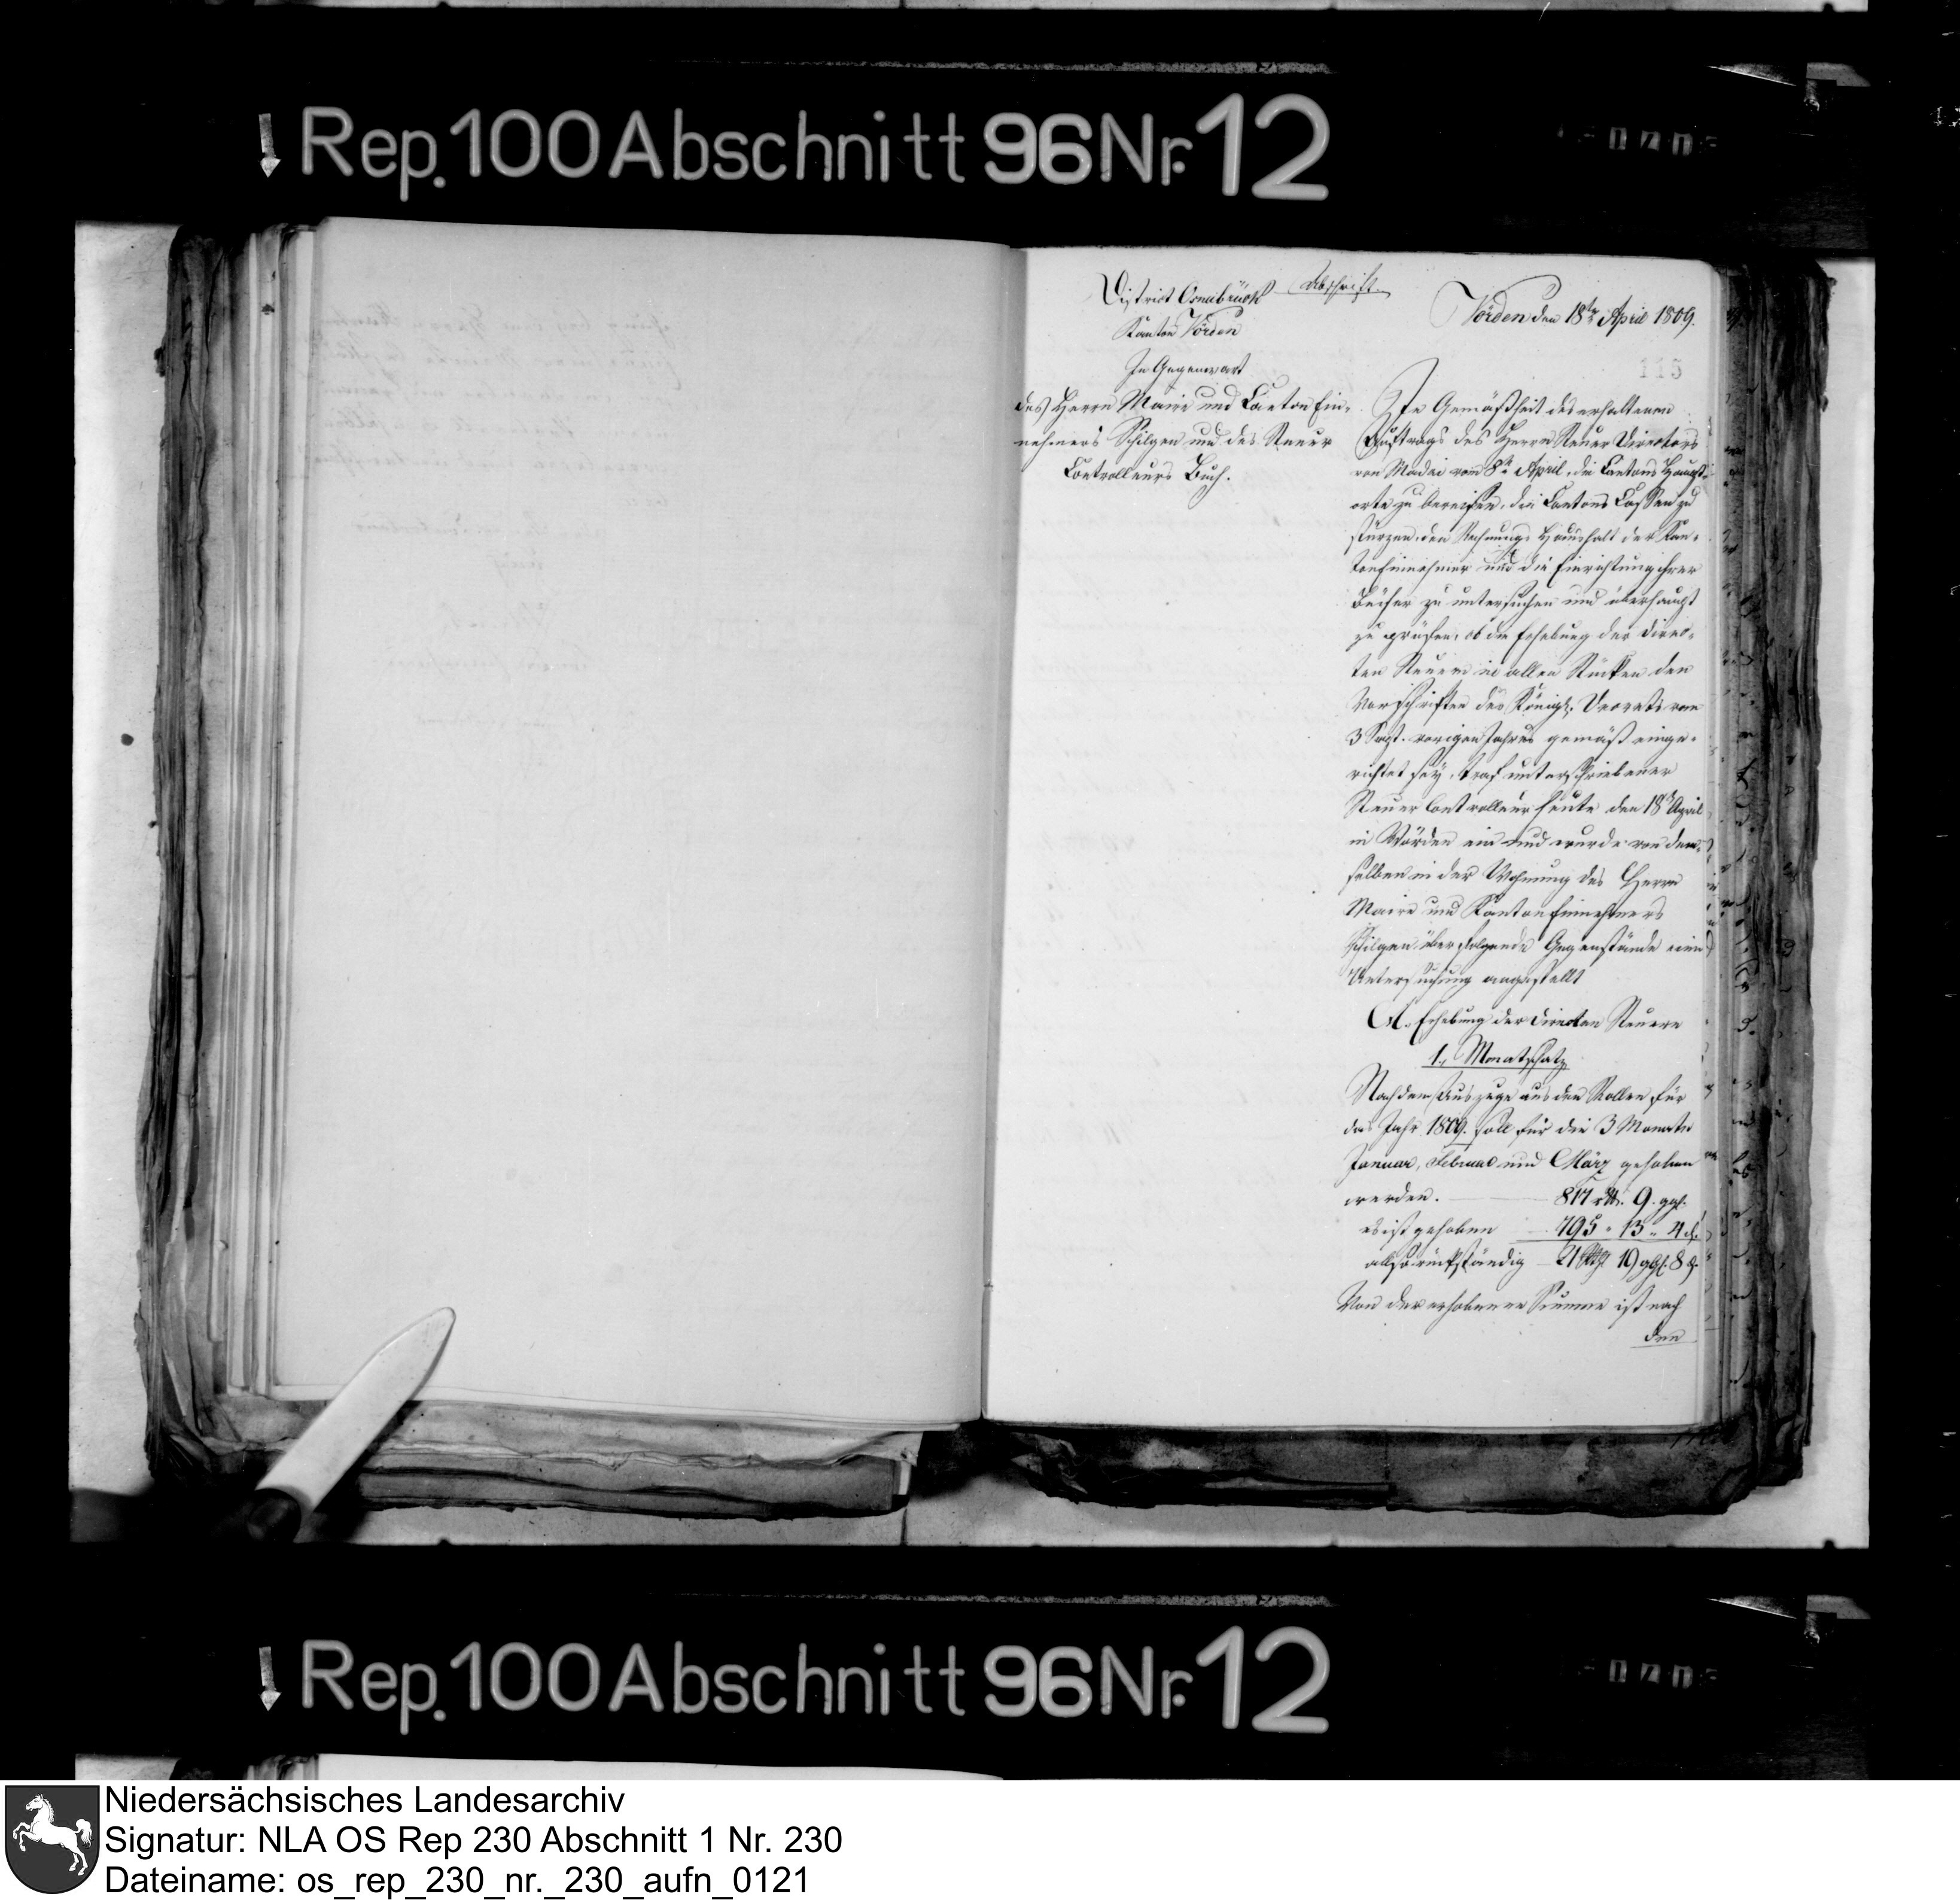 Rep. 100 Abschnitt 96 Nr. 12
District Osnabrück
Abschrift.
Kanton Vörden
Vörden den 18ten April 1809.
115
In Gegenwart
des Herrn Maire und Canton Ein-
nehmers Schilgen und des Steuer
Controlleurs Buch.
In Gemäßheit des erhaltenen
Auftrags des Herrn Steuer Directors
von Madai vom 8ten April, die Cantons Haupt-
orte zu bereisen, die Cantons Cassen zu
stürzen, den Rechnungs Haushalt der Kan-
ton Einnehmer und die Einrichtung ihrer
Bücher zu untersuchen und überhaupt
zu prüfen, ob die Erhebung der direc-
ten Steuern in allen Stücken den
Vorschriften des Königl. Decrets vom
3 Sept. vorigen Jahres gemäß einge-
richtet sey, traf unterschriebener
Steuer Controlleur heute den 18t April
in Vörden ein und wurde von dem-
selben in der Wohnung des Herrn
Maire und Kanton Einnehmers
Schilgen über folgende Gegenstände eine
Untersuchung angestellt
A. Erhebung der directen Steuern
1., Monatschatz
Nach dem Auszuge aus den Rollen für
das Jahr 1809. soll für die 3 Monate
Januar, Februar und März gehoben
werden. 817 rtl. 9. ggl.
es ist gehoben 795 " 13 " 4 d.
also rückständig 21 Rthl 19 ggl. 8 d.
Von der erhobenen Summe ist nach
den
Rep. 100 Abschnitt 96 Nr. 12
Niedersächsisches Landesarchiv
Signatur: NLA OS Rep 230 Abschnitt 1 Nr. 230
Dateiname: os_rep_230_nr._230_aufn_0121